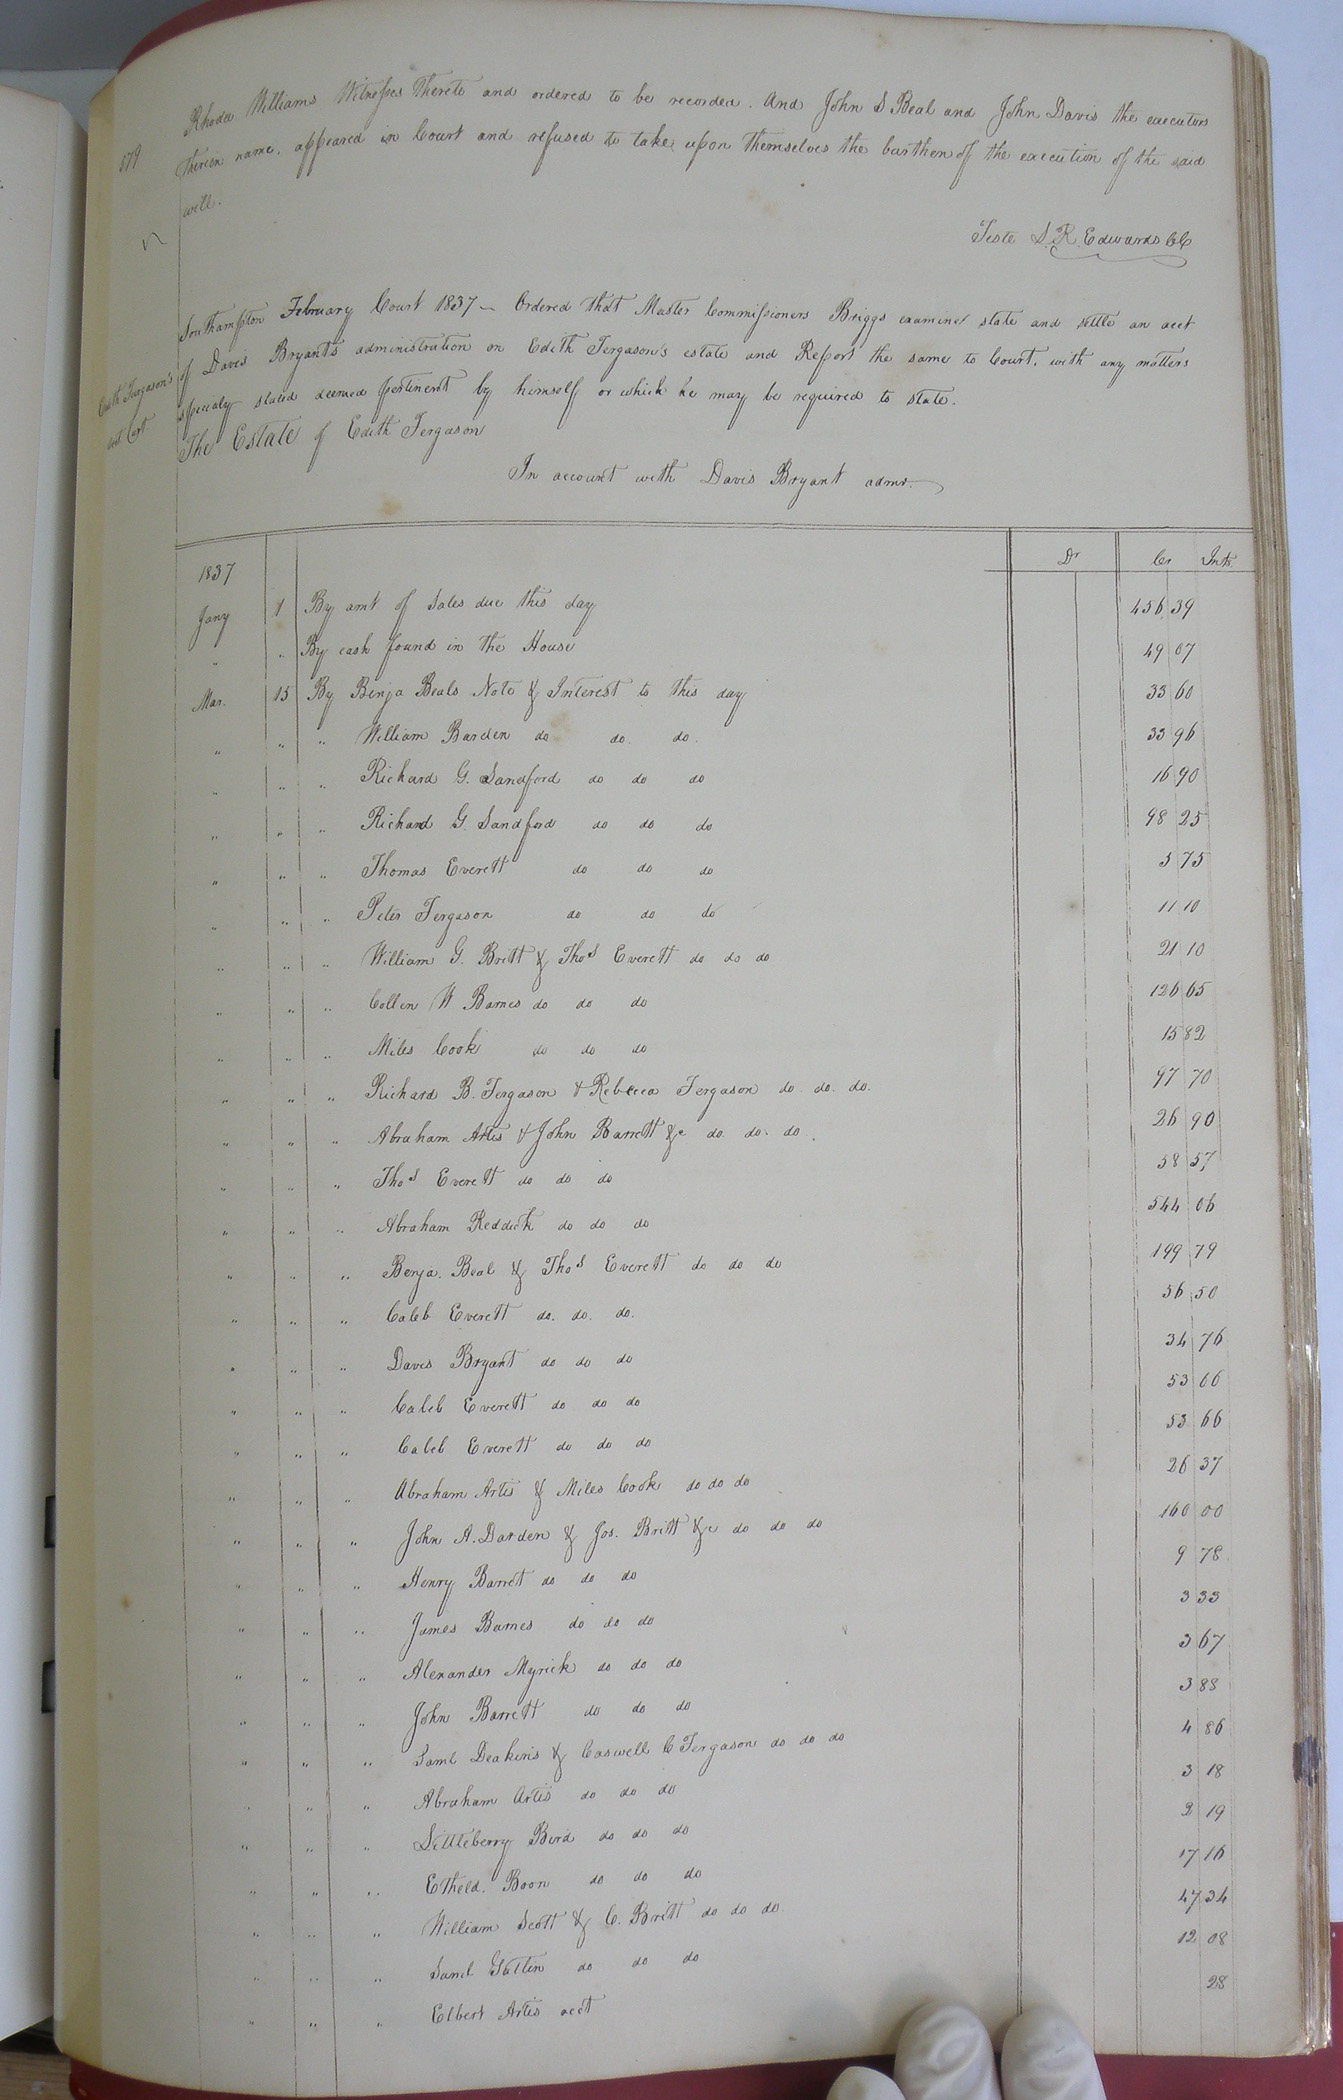 Rhoda Williams Witnesses thereto and ordered to be recorded. And John S Beal and John Davis the executors
579
therein name, appeared in Court and refused to take upon themselves the burthen of the execution of the said
will.
Teste S. R. Edwards CC
Southampton February Court 1837 — Ordered that Master Commissioners Briggs examine state and settle an acct
of Davis Bryant's administration on Edith Fergason's estate and Report the same to Court, with any matters
Edith Fergason's
specialy stated deemed pertinent by himself or which he may be required to state.
The Estate of Edith Fergason
In account with Davis Bryant admr.
Dr Cr Ints
1837
Jany 1 By amt of Sales due this day 456 39
" " By cash found in the House 49 07
Mar. 15 By Benja Beals Note & Interest to this day 33 60
" " " William Barden do do. do. 33 96
" " " Richard G. Sandford do do do 16 90
" " " Richard G. Sandford do do do 98 25
" " " Thomas Everett do do do 3 75
" " " Peter Fergason do do do 11 10
" " " William G. Britt & Thos Everett do do do 21 10
" " " Collin W Barnes do do do 126 65
" " " Miles Cook do do do 15 82
" " " Richard B. Fergason & Rebecca Fergason do. do. do. 97 70
" " " Abraham Artis & John Barrett &c do. do. do. 26 90
" " " Thos Everett do do do 58 57
" " " Abraham Reddick do do do 544 06
" " " Benja. Beal & Thos Everett do do do 199 79
" " " Caleb Everett do. do. do. 56 50
" " " Davis Bryant do do do 34 76
" " " Caleb Everett do do do 53 66
" " " Caleb Everett do do do 53 66
" " " Abraham Artis & Miles Cook do do do 26 37
" " " John A. Darden & Jos. Britt &c do do do 160 00
" " " Henry Barret do do do 9 78
" " " James Barnes do do do 3 33
" " " Alexander Myrick do do do 3 67
" " " John Barrett do do do 3 88
" " " Saml Deakins & Caswell C Fergason do do do 4 86
" " " Abraham Artis do do do 3 18
" " " Littleberry Bird do do do 2 19
" " " Etheld. Boon do do do 17 16
" " " William Scott & C. Britt do do do. 47 34
" " " Saml Gatlin do do do 12 08
" " " Elbert Artis acct 28